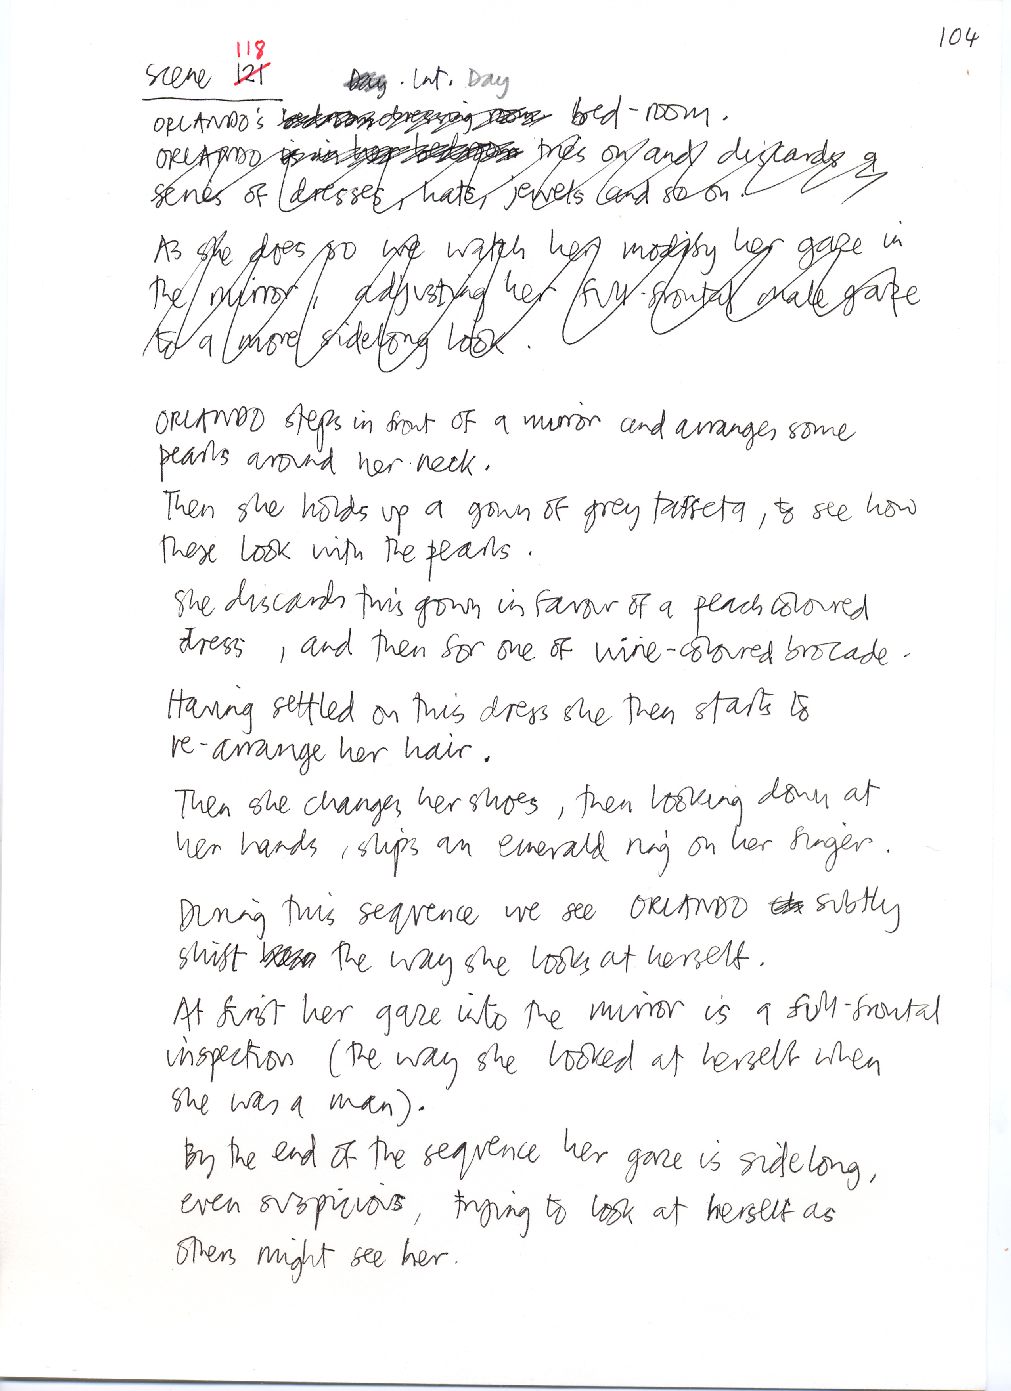 104
118
Scene 121 Day. Int. Day
ORLANDO'S bedroom dressing room bed-room.
ORLANDO is in her bedroom tries on and discards a
series of dresses, hats, jewels and so on.
As she does so we watch her modify her gaze in
the mirror, adjusting her full-frontal male gaze
to a more sidelong look.
ORLANDO steps in front of a mirror and arranges some
pearls around her neck.
Then she holds up a gown of grey taffeta, to see how
these look with the pearls.
She discards this gown in favour of a peach coloured
dress, and then for one of wine-coloured brocade.
Having settled on this dress she then starts to
re-arrange her hair.
Then she changes her shoes, then looking down at
her hands, slips an emerald ring on her finger.
During this sequence we see ORLANDO subtly
shift the way she looks at herself.
At first her gaze into the mirror is a full-frontal
inspection (the way she looked at herself when
she was a man).
By the end of the sequence her gaze is sidelong,
even suspicious, trying to look at herself as
others might see her.